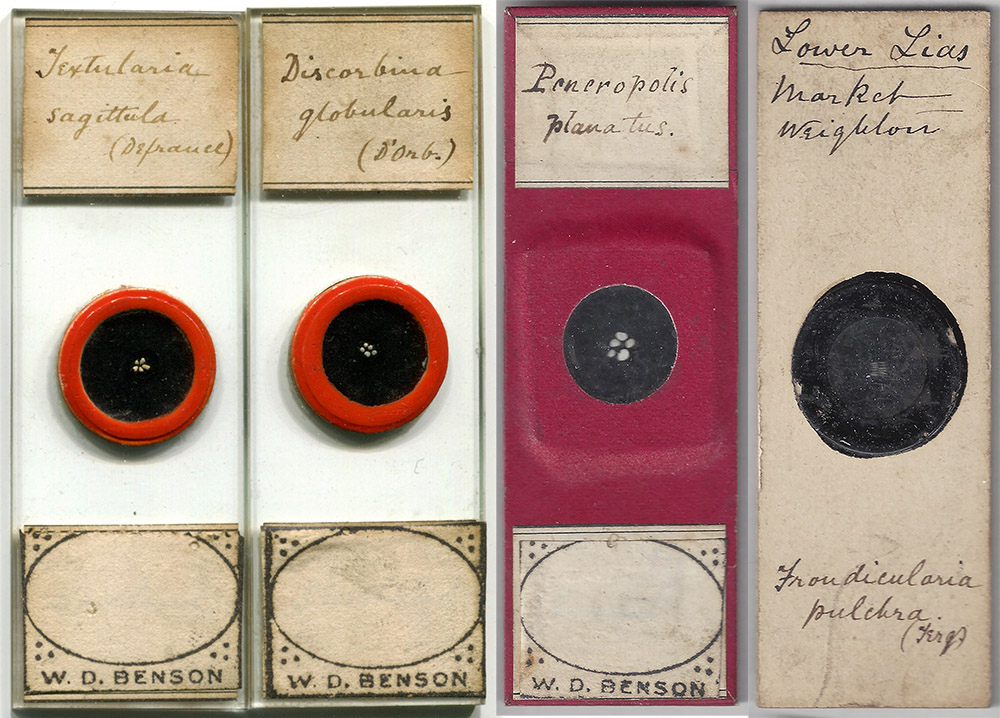 Textularia
sagittula
(Defrance)
W. D. BENSON
Discorbina
globularis
(D'Orb.)
W. D. BENSON
Peneropolis
planatus.
W. D. BENSON
Lower Lias
Market
Weighton
Frondicularia
pulchra
(Terq)